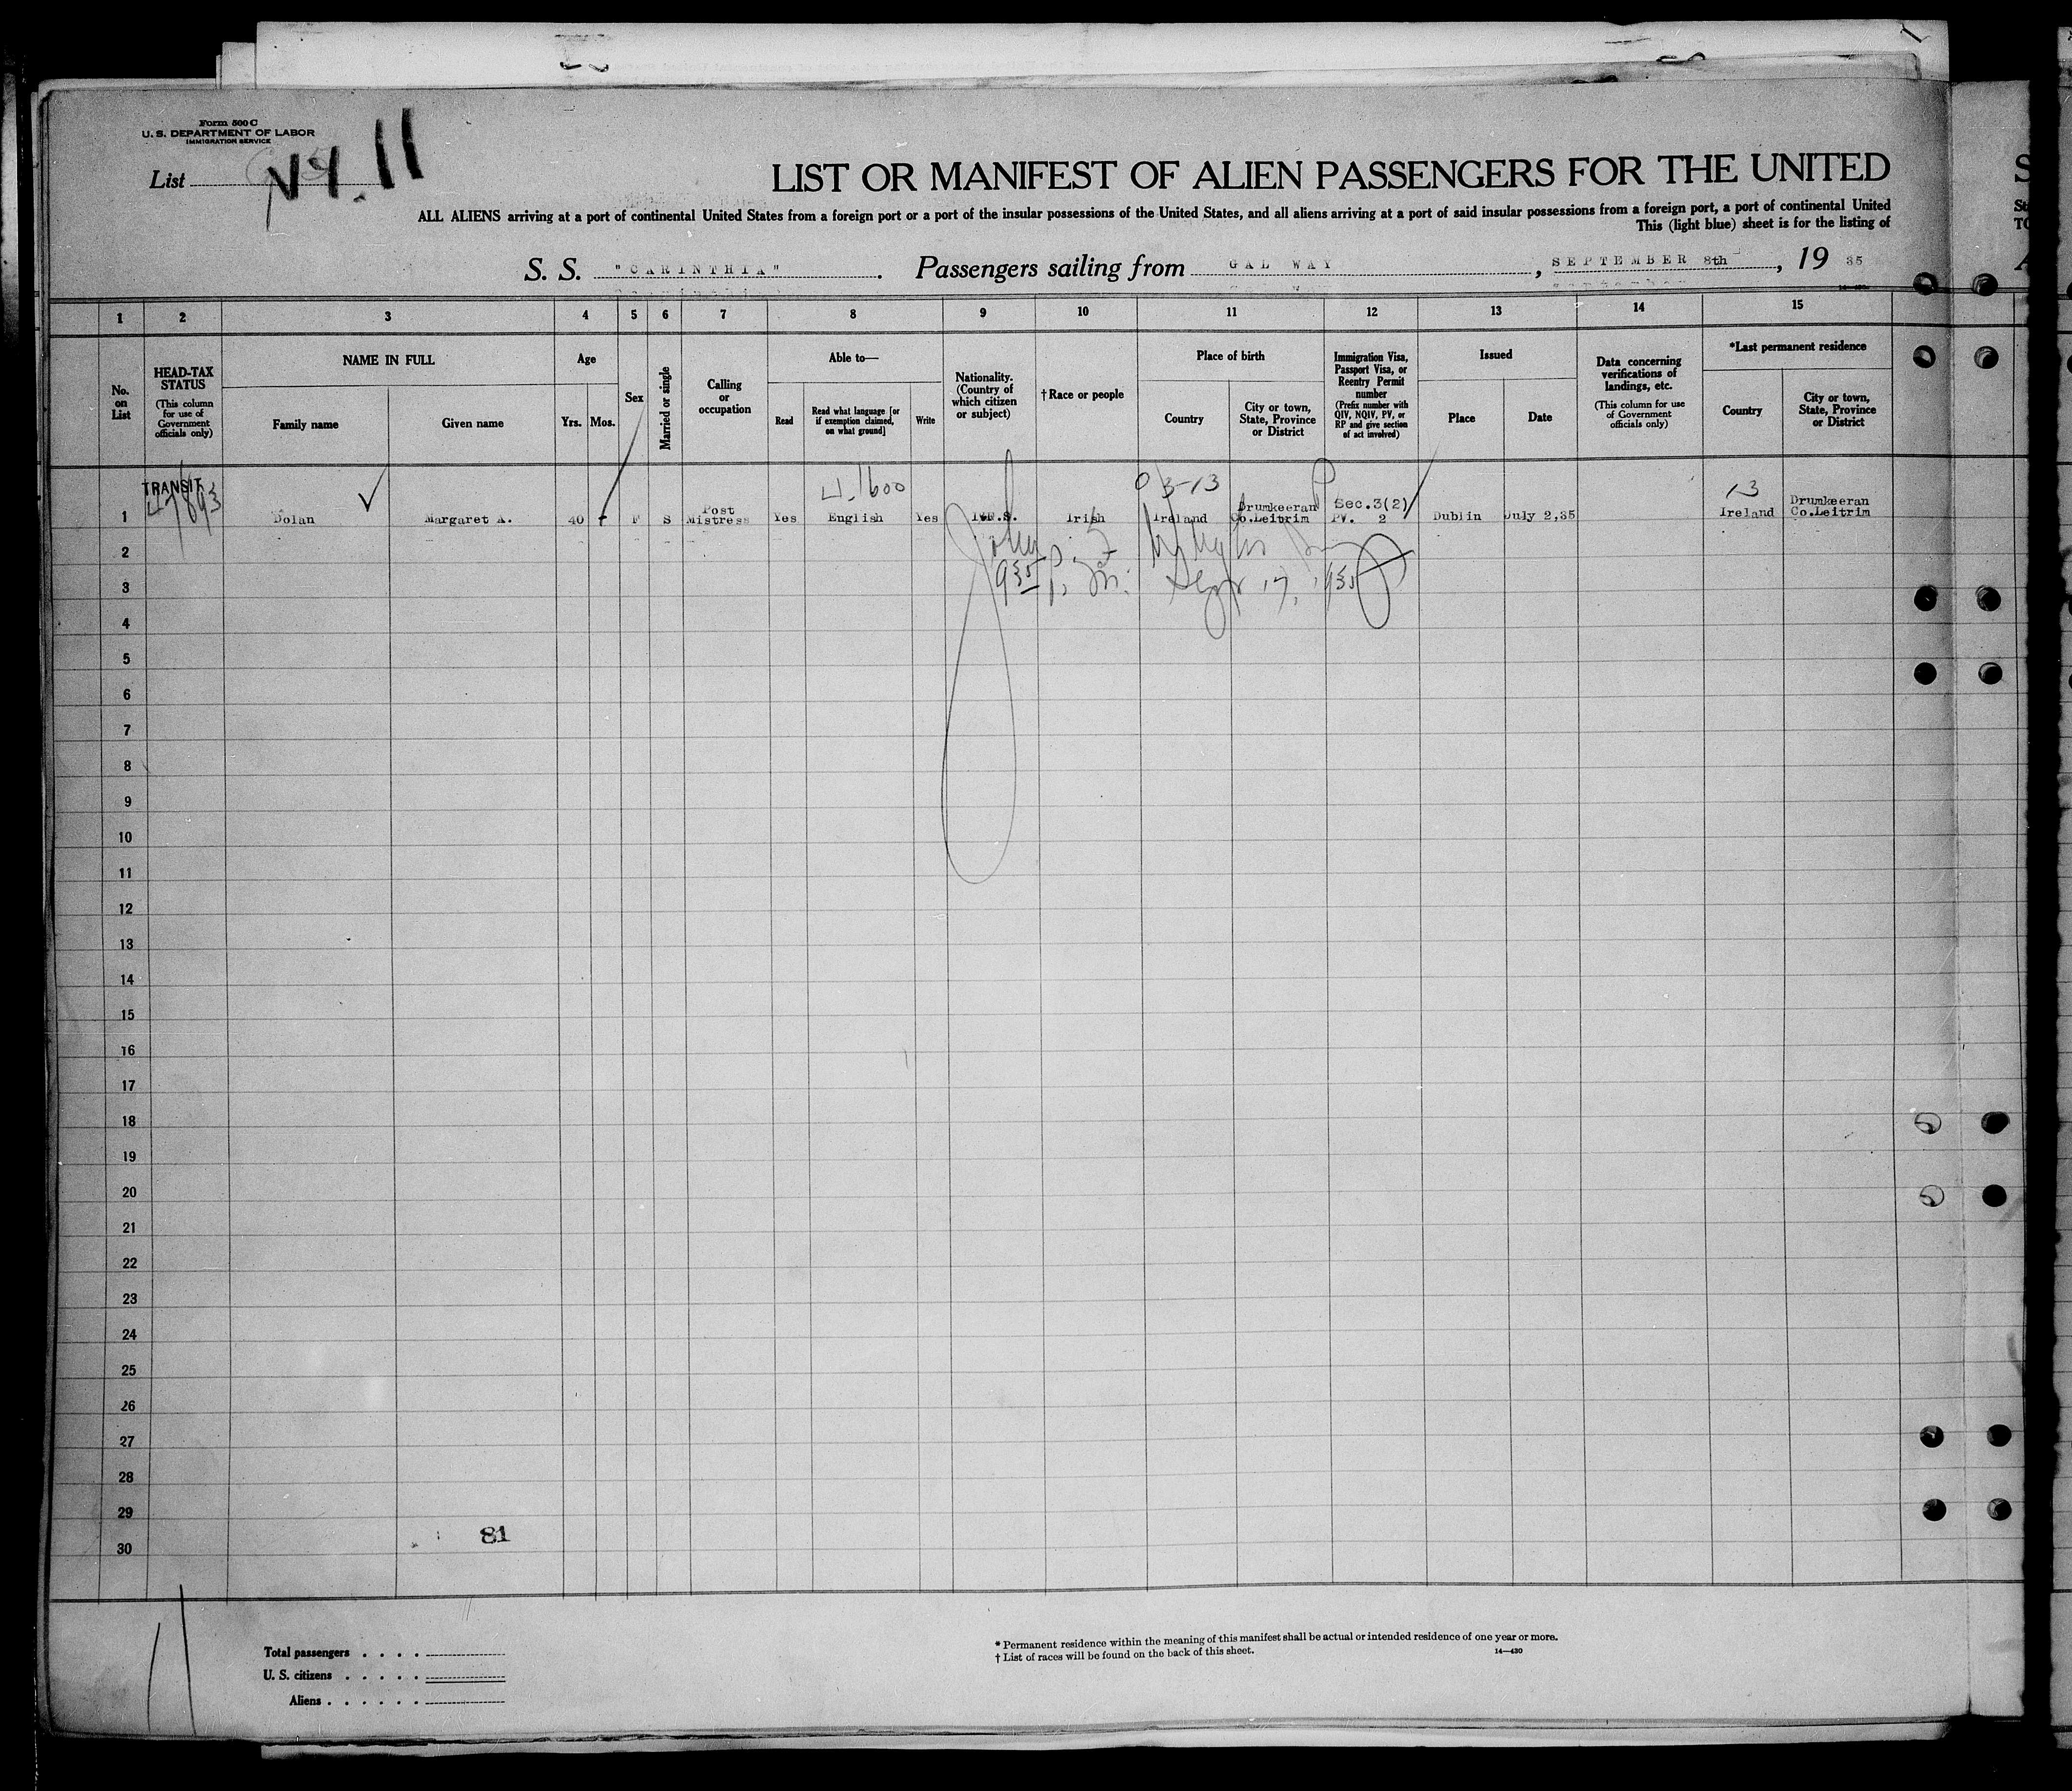 Form 500 C
U. S. DEPARTMENT OF LABOR
IMMIGRATION SERVICE
List
11
LIST OR MANIFEST OF ALIEN PASSENGERS FOR THE UNITED
ALL ALIENS arriving at a port of continental United States from a foreign port or a port of the insular possessions of the United States, and all aliens arriving at a port of said insular possessions from a foreign port, a port of continental United
This (light blue) sheet is for the listing of
S. S. "CARINTHIA". Passengers sailing from GALWAY, SEPTEMBER 8th, 19 35
1 2 3 4 5 6 7 8 9 10 11 12 13 14 15
No. on List
HEAD-TAX STATUS
(This column for use of Government officials only)
NAME IN FULL
Family name
Given name
Age
Yrs.
Mos.
Sex
Married or single
Calling or occupation
Able to—
Read
Read what language [or if exemption claimed, on what ground]
Write
Nationality. (Country of which citizen or subject)
†Race or people
Place of birth
Country
City or town, State, Province or District
Immigration Visa, Passport Visa, or Reentry Permit number
(Prefix number with QIV, NQIV, PV, or RP and give section of act involved)
Issued
Place
Date
Data concerning verifications of landings, etc.
(This column for use of Government officials only)
*Last permanent residence
Country
City or town, State, Province or District
TRANSIT
4-1600
13
1 Dolan Margaret A. 40 F S Post Mistress Yes English Yes I.F.S. Irish Ireland Drumkeeran Co.Leitrim Sec.3(2) PV. 2 Dublin July 2,35 Ireland Drumkeeran Co.Leitrim
2
935 P. M. Sept 17, 1935
3
4
5
6
7
8
9
10
11
12
13
14
15
16
17
18
19
20
21
22
23
24
25
26
27
28
29
81
30
Total passengers
U. S. citizens
Aliens
* Permanent residence within the meaning of this manifest shall be actual or intended residence of one year or more.
† List of races will be found on the back of this sheet.
14—430